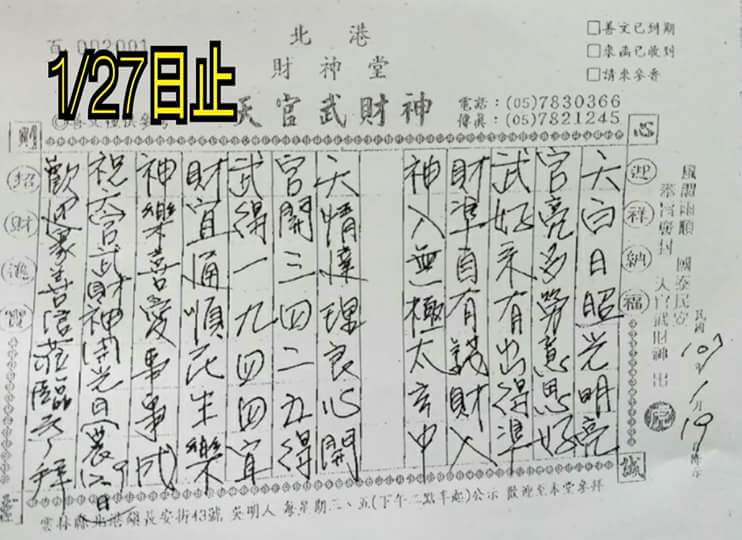 百 002001
1/27日止
北港
財神堂
天官武財神
電話：(05)7830366
傳真：(05)7821245
□善文已到期
□來函已收到
□請來參香
風調雨順 國泰民安
天官武財神 出
民國107年1月19日
心
誠
迎祥納福
天白日照光明亮
官亮多勞意思好
武好來有出得準
財準自有錢財入
神入無極太玄中
天情達理良心開
官開三四二五得
武得一九四四宜
財宜通順民生樂
神樂喜愛事事成
祝天官武財神開光日
歡迎眾善信蒞臨參拜
則
招財進寶
雲林縣北港鎮長安街43號, 吳明人 每星期二、五(下午二點半起)公示 歡迎至本堂參拜